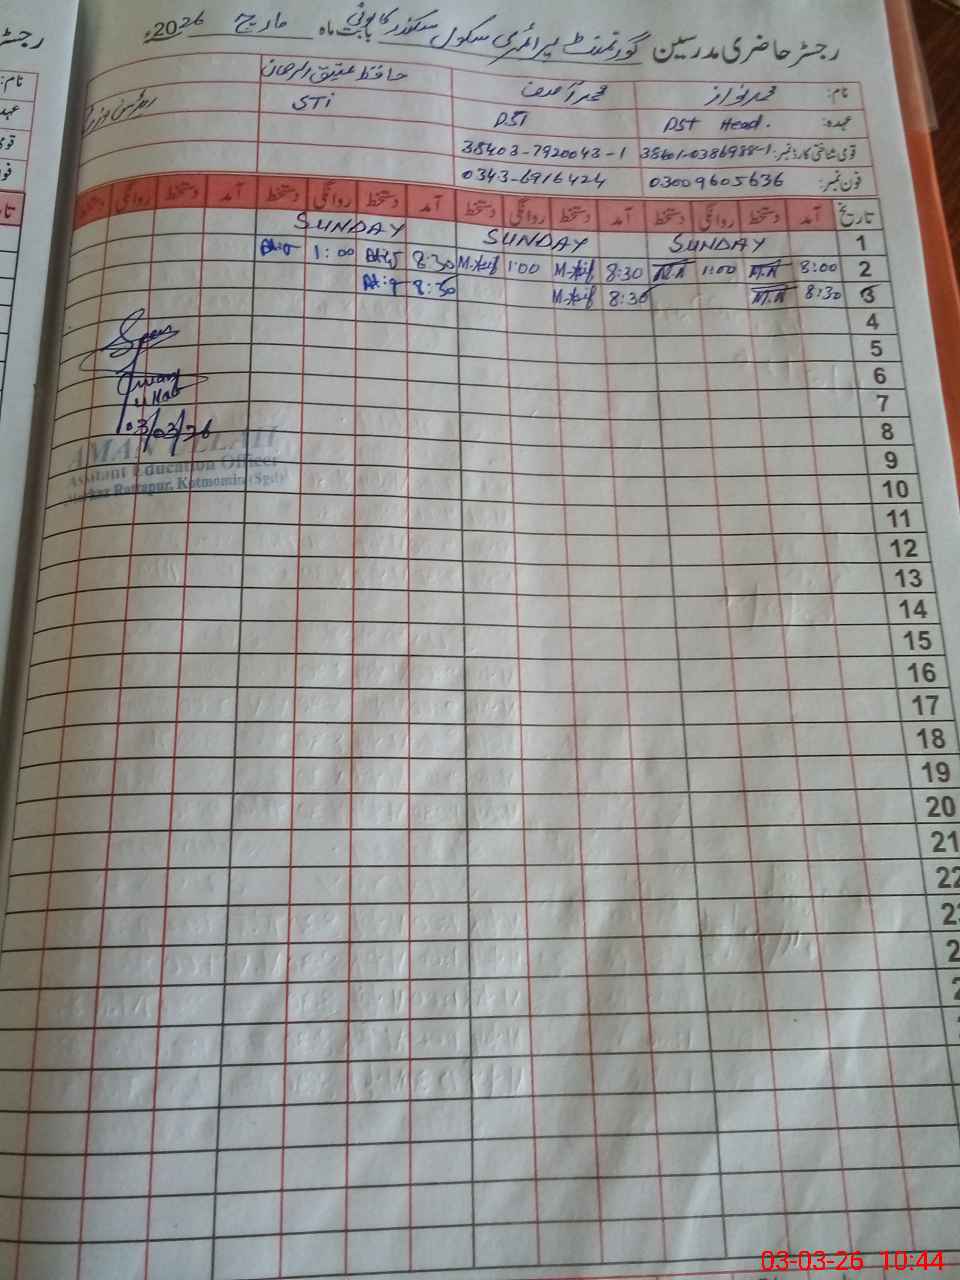 رجسٹر حاضری مدرسین گورنمنٹ پرائمری سکول سکندر کالونی بابت ماہ مارچ 2026ء
نام: محمد نواز محمد آصف حافظ عتیق الرحمان
عہدہ: PST Head. PST STi
قومی شناختی کارڈ نمبر: 38601-0386988-1 38403-7920043-1
فون نمبر: 03009605636 0343-6916424
تاریخ آمد دستخط روانگی دستخط آمد دستخط روانگی دستخط آمد دستخط روانگی دستخط آمد دستخط روانگی دستخط
1 SUNDAY SUNDAY SUNDAY
2 8:00 M.N 1:00 M.N 8:30 M.Asif 1:00 M.Asif 8:30 Atiq 1:00 Atiq
3 8:30 M.N 8:30 M.Asif 8:30 Atiq
4
5
6
7
8
9
10
11
12
13
14
15
16
17
18
19
20
21
22
03/03/26
AMAN ULLAH
Assistant Education Officer
Markaz Rattapur, Kotmomin (Sgd)
رجسٹر
نام:
03-03-26 10:44